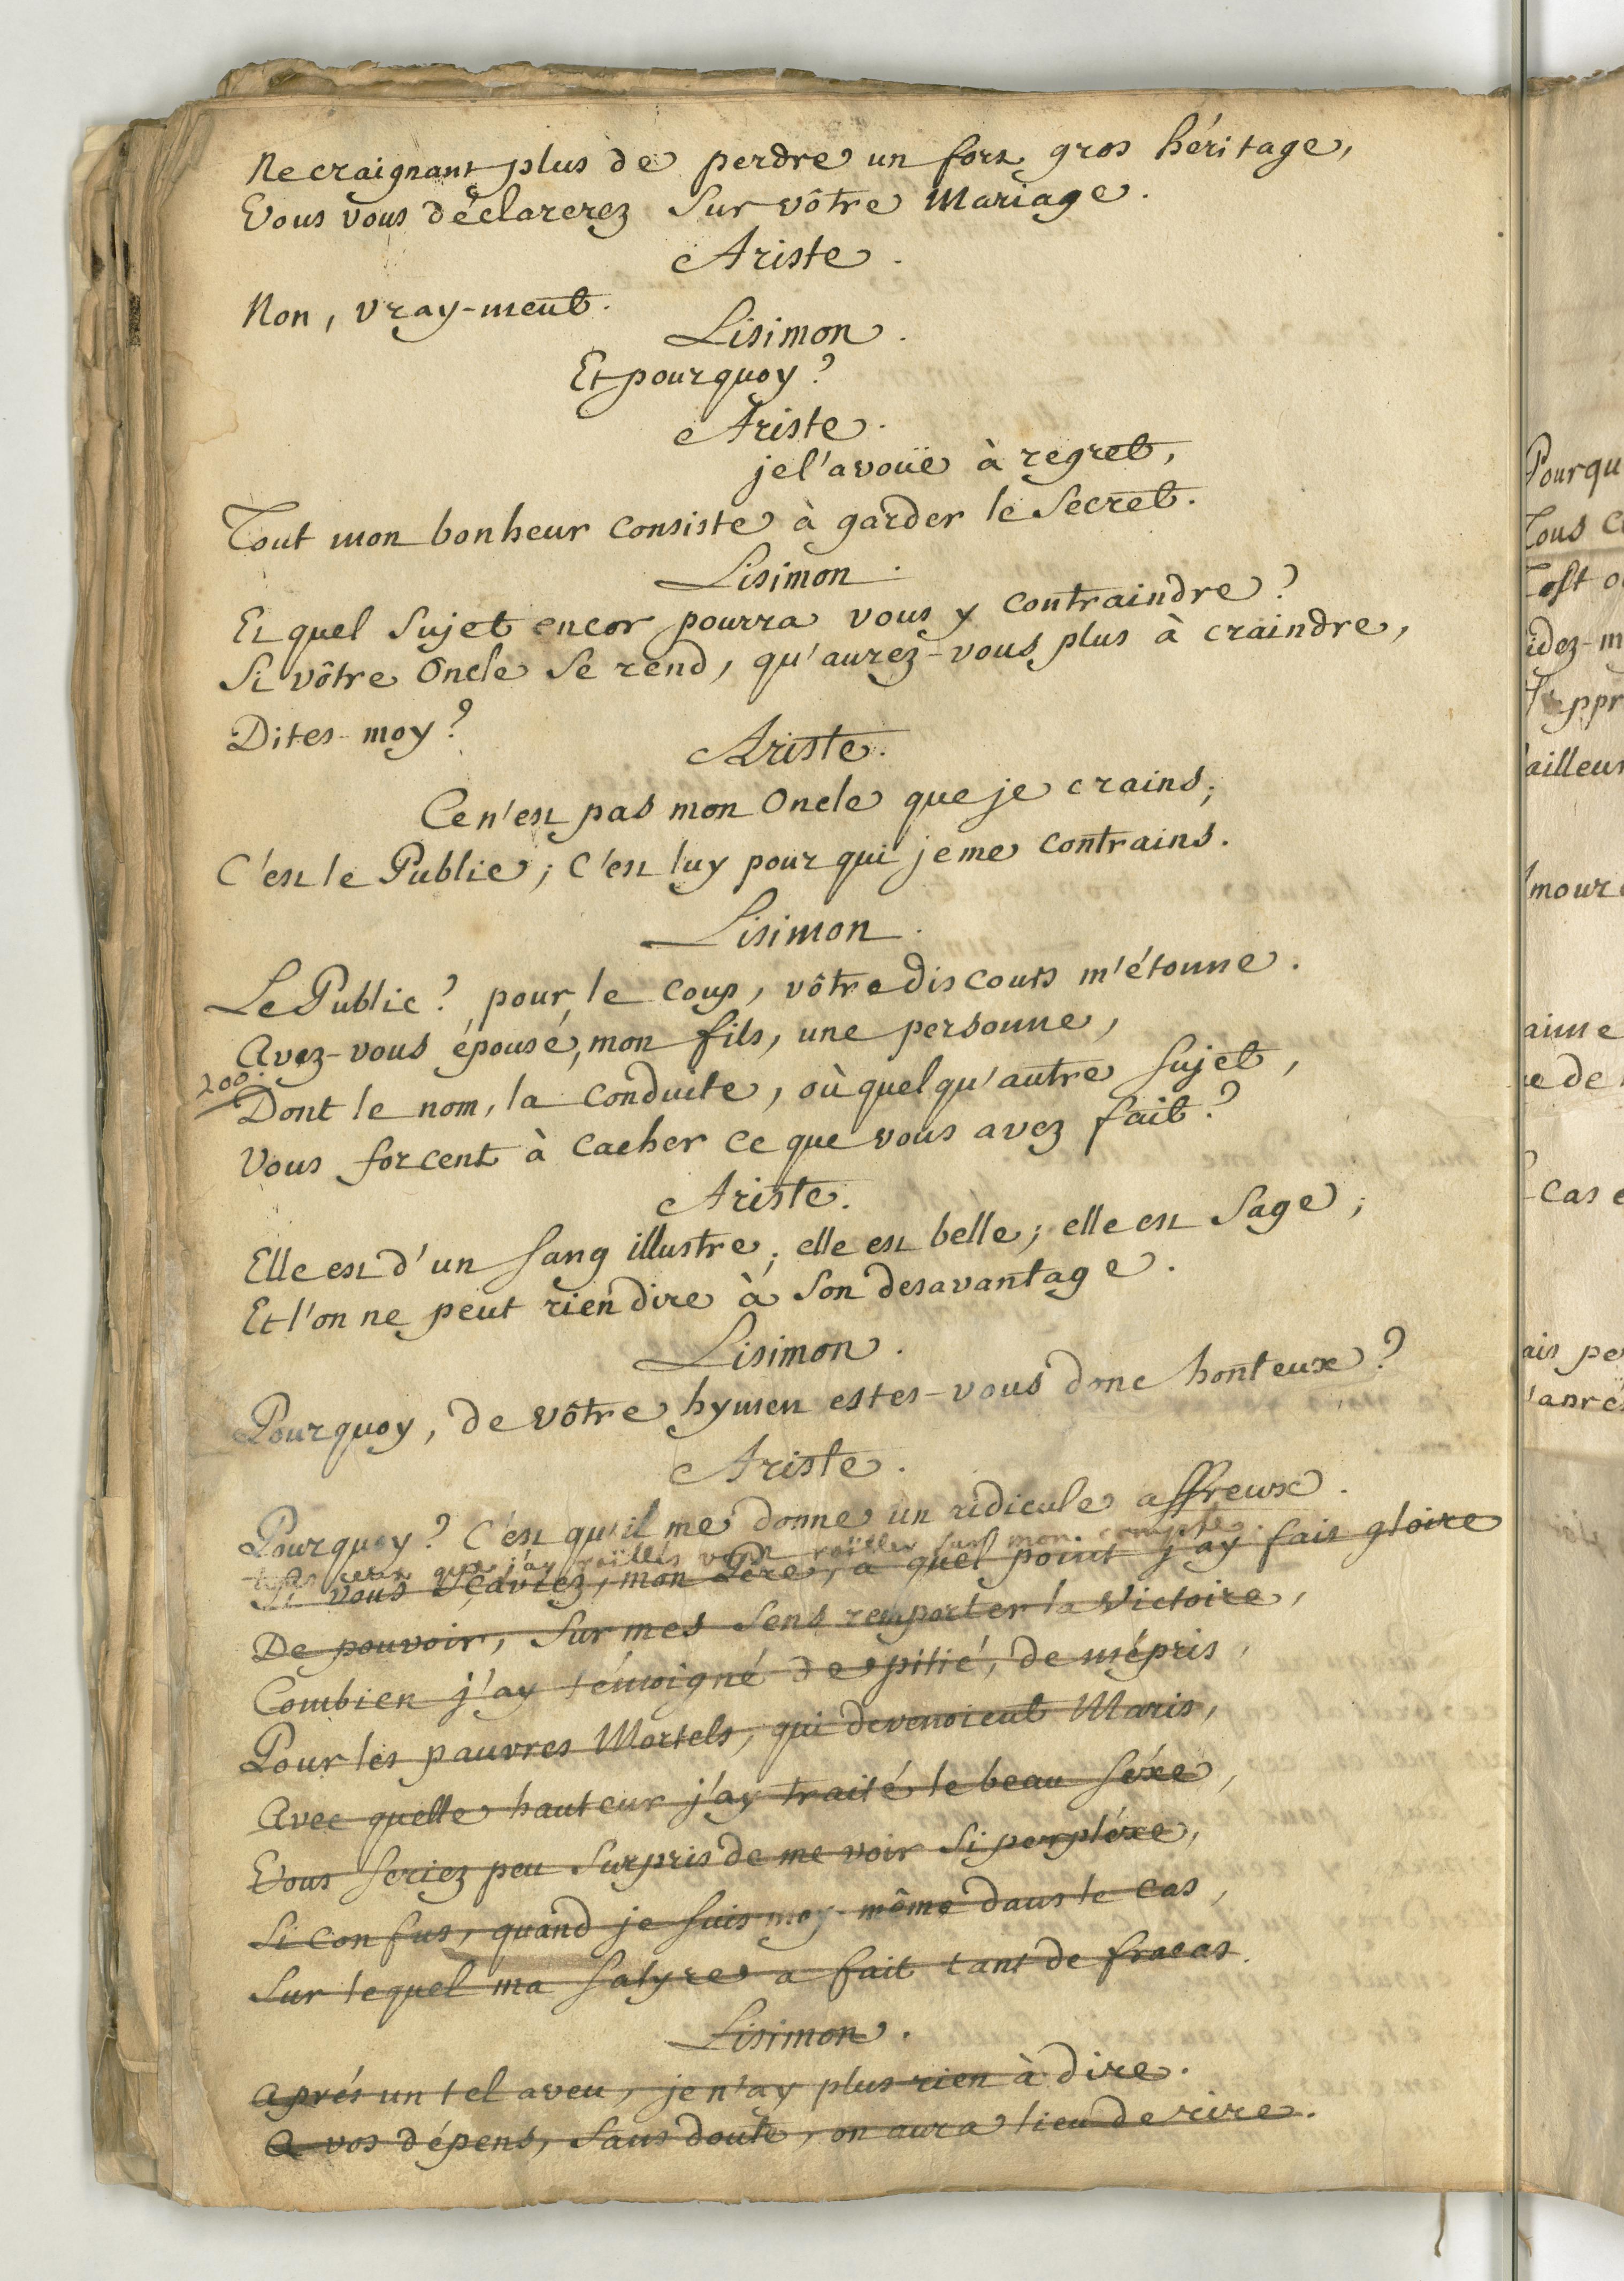 Ne craignant plus de perdre un fort gros héritage,
Vous vous déclarerez sur vôtre Mariage.
Ariste.
Non, vray-ment.
Lisimon.
Et pourquoy?
Ariste.
je l'avoüe à regret,
Tout mon bonheur consiste à garder le Secret.
Lisimon.
Et quel Sujet encor pourra vous y contraindre?
Si vôtre Oncle se rend, qu'aurez-vous plus à craindre,
Dites-moy?
Ariste.
Ce n'est pas mon Oncle que je crains;
C'est le Public; c'est luy pour qui je me contrains.
Lisimon.
Le Public? pour le coup, vôtre discours m'étonne.
Avez-vous épousé, mon fils, une personne,
200.
Dont le nom, la conduite, où quelqu'autre sujet,
Vous forcent à cacher ce que vous avez fait?
Ariste.
Elle est d'un sang illustre; elle est belle; elle est sage;
Et l'on ne peut rien dire à son desavantage.
Lisimon.
Pourquoy, de vôtre hymen estes-vous donc honteux?
Ariste.
Pourquoy? C'est qu'il me donne un ridicule affreux.
tous ceux que j'ay raillés vont railler sur mon compte.
Si vous sçaviez, mon Pere, a quel point j'ay fait gloire
De pouvoir, sur mes sens remporter la Victoire,
Combien j'ay témoigné de pitié, de mépris,
Pour les pauvres Mortels, qui devenoient Maris,
Avec quelle hauteur j'ay traité le beau séxe,
Vous seriez peu surpris de me voir si perpléxe,
Si confus, quand je suis moy-même dans le cas,
Sur lequel ma satyre a fait tant de fracas.
Lisimon.
Aprés un tel aveu, je n'ay plus rien à dire.
A vos dépens, sans doute, on aura lieu de rire.
Pourqu
Tous c
idez-m
ppr
ailleur
mour
aime
e de
cas
ais pe